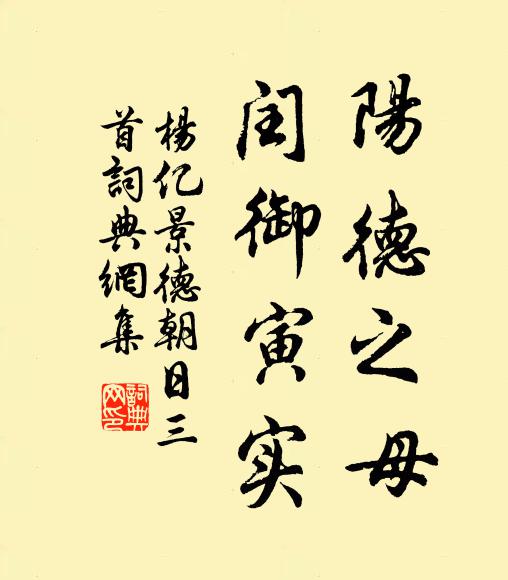 陽德之母
闰御寅实
楊亿景德朝日三
首詞典網集
詞典
网印